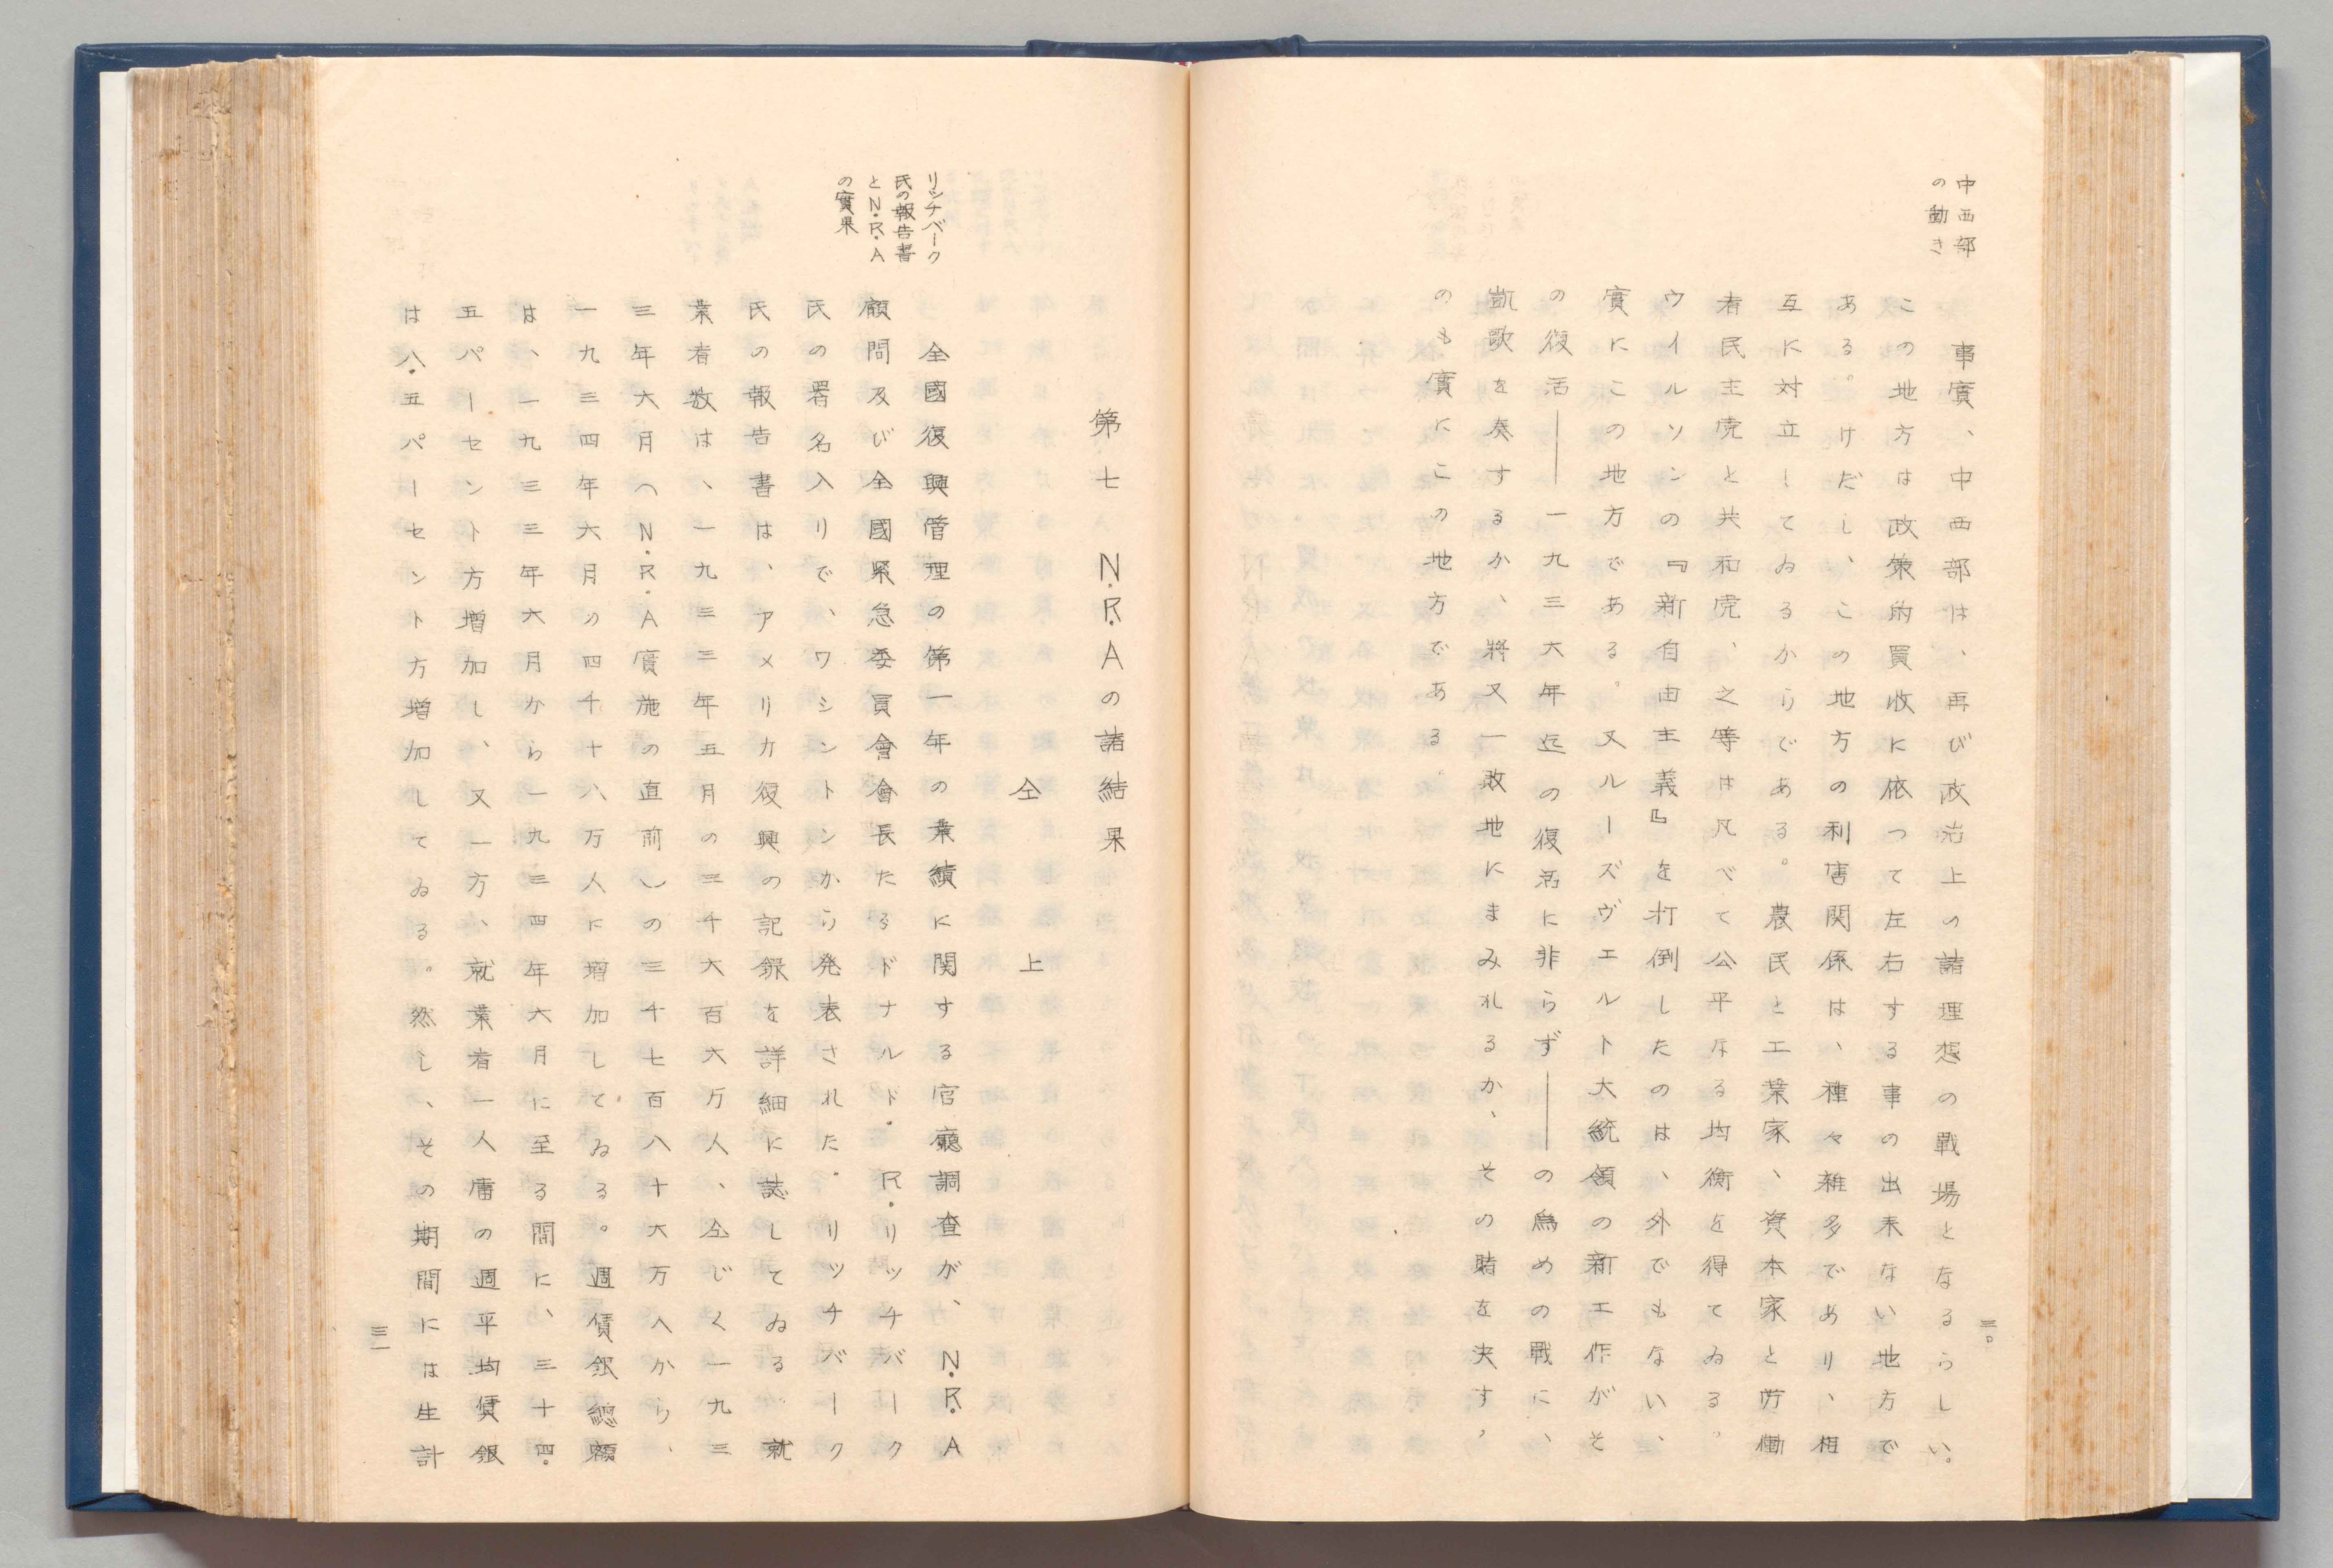 中西部
の動き
事實、中西部は、再び政治上の諸理想の戰場となるらしい。
この地方は政策的買收に依つて左右する事の出来ない地方で
ある。けだし、この地方の利害関係は、種々雑多であり、相
互に対立してゐるからである。農民と工業家、資本家と労働
者民主党と共和党、之等は凡べて公平なる均衡を得てゐる。
ウイルソンの『新自由主義』を打倒したのは、外でもない、
實にこの地方である。又ルーズヴエルト大統領の新工作がそ
の復活――一九三六年迄の復活に非らず――の爲めの戰に、
凱歌を奏するか、將又一敗地にまみれるか、その賭を決す、
のも實にこの地方である。
三〇
第七 N.R.Aの諸結果
仝上
リツチバーク
氏の報告書
とN.R.A
の實果
全國復興管理の第一年の業績に関する官廳調査が、N.R.A
顧問及び全國緊急委員會會長たるドナルド.R.リツチバーク
氏の署名入りで、ワシントンから発表された.リツチバーク
氏の報告書は、アメリカ復興の記録を詳細に誌してゐる就
業者数は、一九三三年五月の三千六百六万人、仝じく一九三
三年六月（N.R.A實施の直前）の三千七百八十六万人から、
一九三四年六月の四千十八万人に増加してゐる。週賃銀總額
は、一九三三年六月から一九三四年六月に至る間に、三十四.
五パーセント方増加し、又一方、就業者一人當の週平均賃銀
は八.五パーセント方増加してゐる。然し、その期間には生計
三一